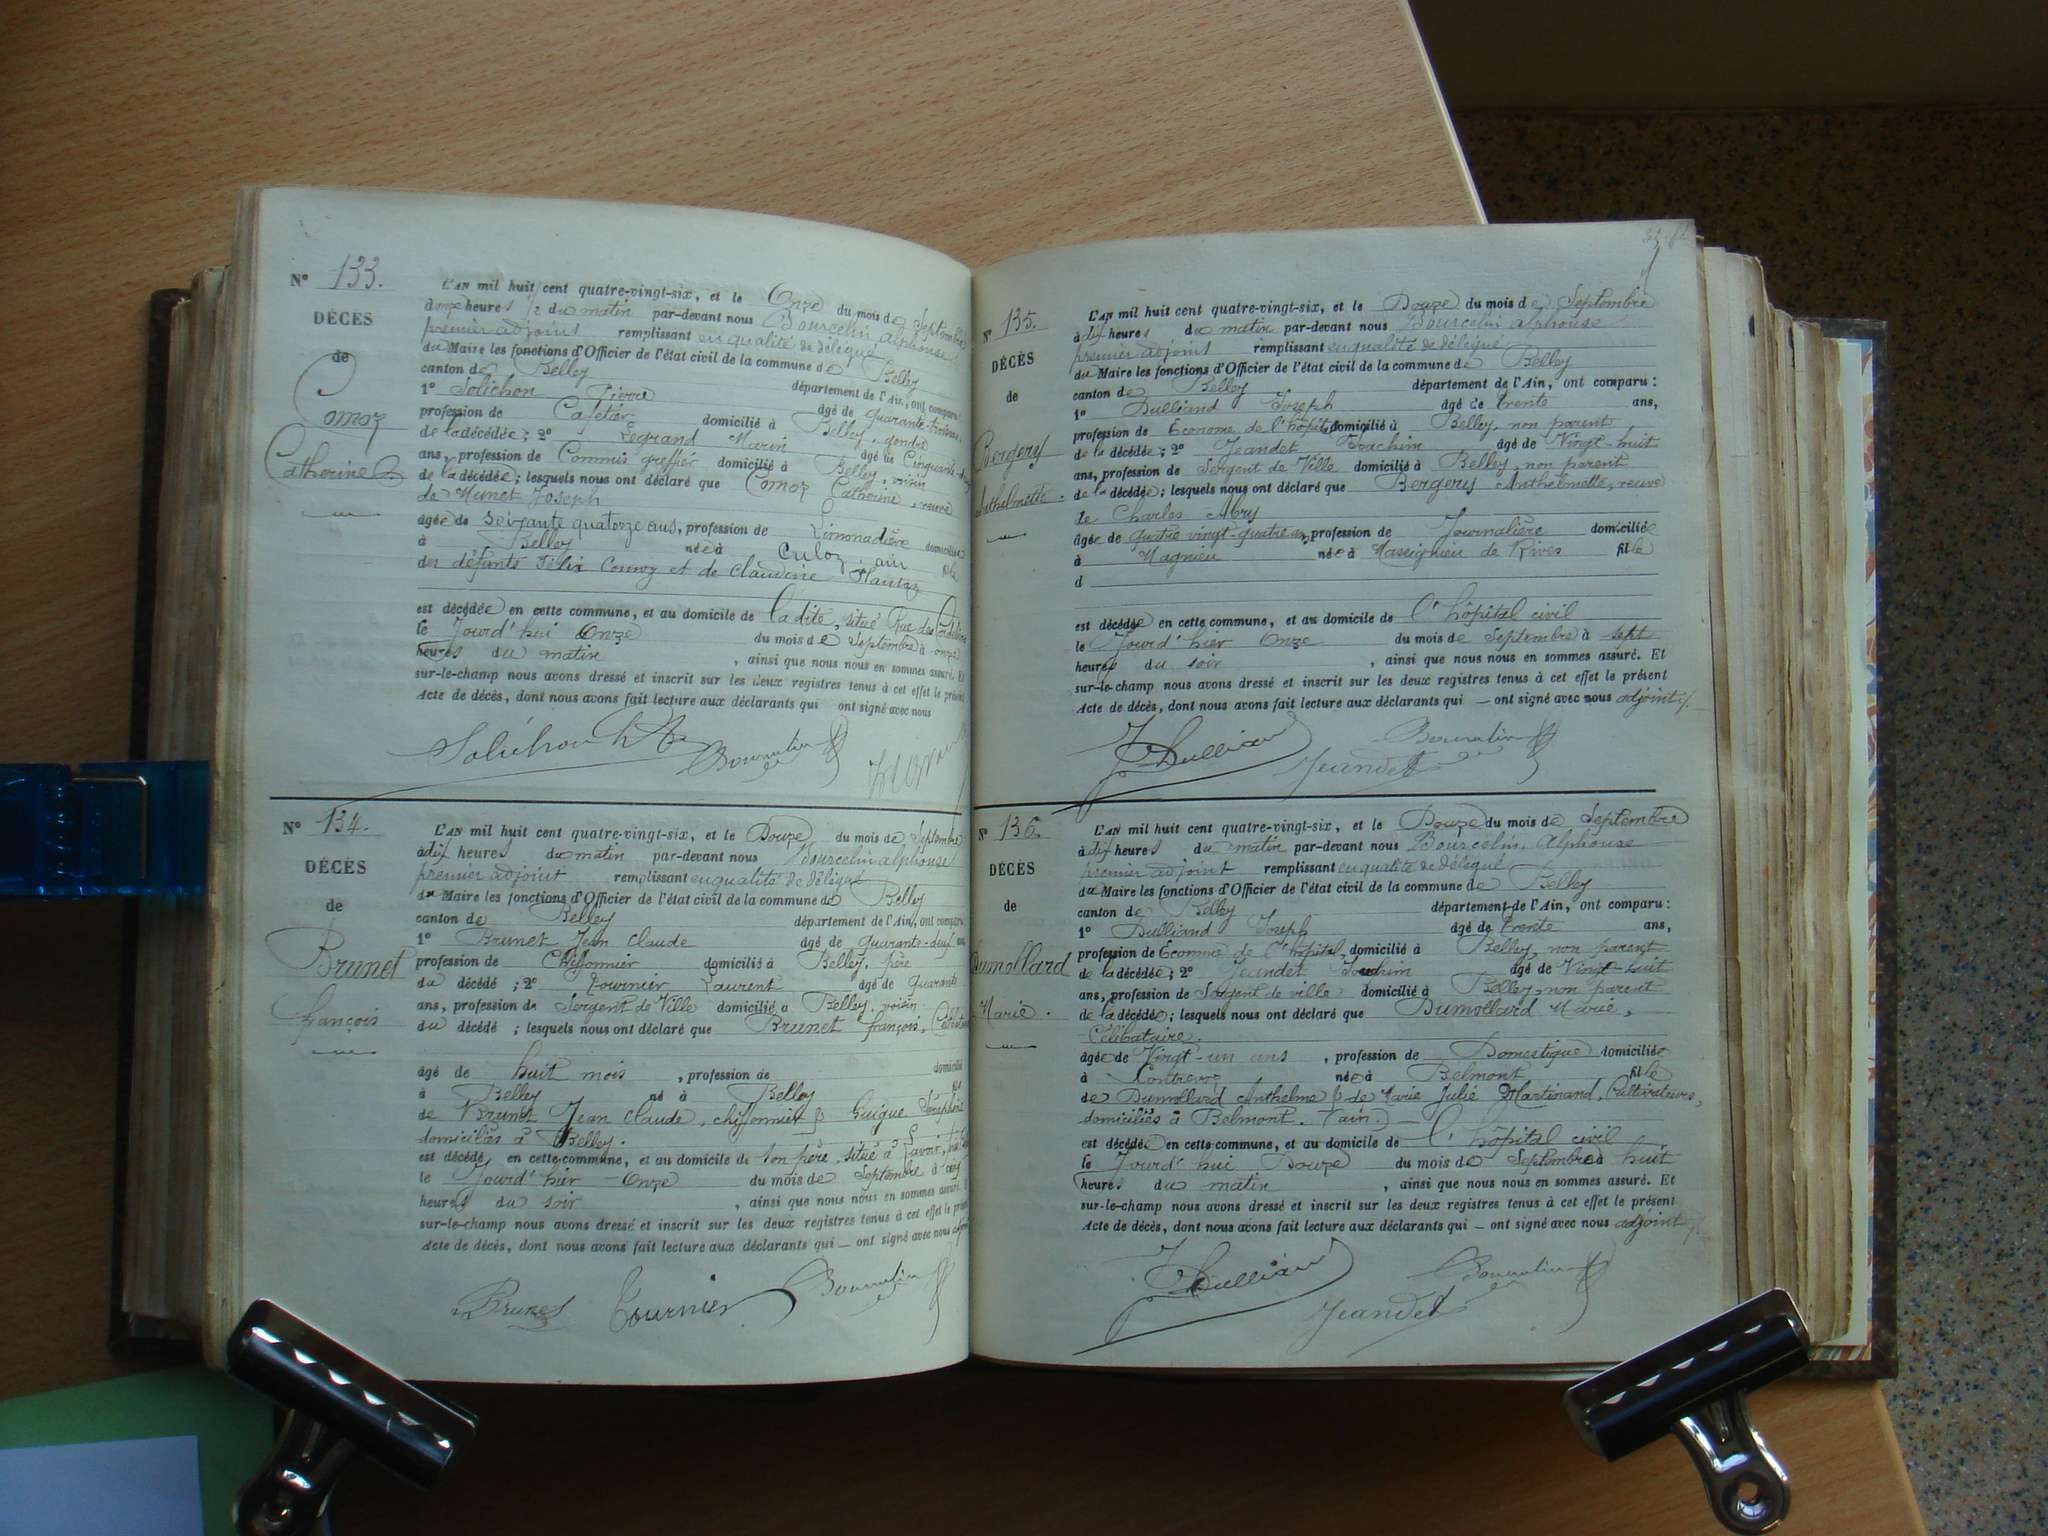 N° 133.
DÉCÈS
de
Comoz
Catherine
L'AN mil huit cent quatre-vingt-six, et le Onze du mois de Septembre
à onze heures 1/2 du matin par-devant nous Bourcelin alphonse
premier adjoint remplissant en qualité de délégué
du Maire les fonctions d'Officier de l'état civil de la commune de Belley
canton de Belley département de l'Ain, ont comparu:
1° Solichon Pierre âgé de quarante-trois ans,
profession de Cafetier domicilié à Belley, gendre
de la décédée; 2° Legrand Marin âgé de Cinquante-
ans, profession de Commis greffier domicilié à Belley, voisin
de la décédée; lesquels nous ont déclaré que Comoz Catherine, veuve
de Munet Joseph
âgée de Soixante quatorze ans, profession de Limonadière domiciliée
à Belley née à Culoz, ain fille
des défunts Félix Comoz et de Claudine
est décédée en cette commune, et au domicile de la dite, situé Rue des Cordeliers
le Jourd'hui Onze du mois de Septembre à onze
heures du matin, ainsi que nous nous en sommes assuré. Et
sur-le-champ nous avons dressé et inscrit sur les deux registres tenus à cet effet le présent
Acte de décès, dont nous avons fait lecture aux déclarants qui ont signé avec nous
Solichon Bourcelin
N° 134.
DÉCÈS
de
Brunet
françois
L'AN mil huit cent quatre-vingt-six, et le Douze du mois de Septembre
à dix heures du matin par-devant nous Bourcelin alphonse
premier adjoint remplissant en qualité de délégué
du Maire les fonctions d'Officier de l'état civil de la commune de Belley
canton de Belley département de l'Ain, ont comparu
1° Brunet Jean Claude âgé de quarante-deux ans
profession de Chiffonnier domicilié à Belley, père
du décédé; 2° Fournier Laurent âgé de quarante
ans, profession de Sergent de Ville domicilié à Belley, voisin
du décédé; lesquels nous ont déclaré que Brunet françois,
âgé de huit mois, profession de domicilié
à Belley né à Belley fils
de Brunet Jean Claude, chiffonnier & Guigue Séraphine
domiciliés à Belley.
est décédé en cette commune, et au domicile de son père, situé à
le Jourd'hier - Onze du mois de Septembre à cinq
heures du soir, ainsi que nous nous en sommes assuré. Et
sur-le-champ nous avons dressé et inscrit sur les deux registres tenus à cet effet le présent
Acte de décès, dont nous avons fait lecture aux déclarants qui — ont signé avec nous adjoint
Brunet Fournier Bourcelin
N° 135.
DÉCÈS
de
Bergery
Anthelmette.
L'AN mil huit cent quatre-vingt-six, et le Douze du mois de Septembre
à dix heures du matin par-devant nous Bourcelin alphonse
premier adjoint remplissant en qualité de délégué
du Maire les fonctions d'Officier de l'état civil de la commune de Belley
canton de Belley département de l'Ain, ont comparu:
1° Dulliand Joseph âgé de trente ans,
profession de Econome de l'hôpital domicilié à Belley, non parent
de la décédée; 2° Jeandet Joachim âgé de Vingt-huit
ans, profession de Sergent de Ville domicilié à Belley, non parent
de la décédée; lesquels nous ont déclaré que Bergery Anthelmette, veuve
de Charles Abry
âgée de quatre vingt-quatre ans, profession de Journalière domiciliée
à Magnieu née à Massignieu de Rives fille
d
est décédée en cette commune, et au domicile de l'hôpital civil
le Jourd'hier Onze du mois de Septembre à sept
heures du soir, ainsi que nous nous en sommes assuré. Et
sur-le-champ nous avons dressé et inscrit sur les deux registres tenus à cet effet le présent
Acte de décès, dont nous avons fait lecture aux déclarants qui — ont signé avec nous adjoint
J Dulliand Jeandet Bourcelin
N° 136.
DÉCÈS
de
Dumollard
Marie.
L'AN mil huit cent quatre-vingt-six, et le Douze du mois de Septembre
à dix heures du matin par-devant nous Bourcelin, Alphonse
premier adjoint remplissant en qualité de délégué
du Maire les fonctions d'Officier de l'état civil de la commune de Belley
canton de Belley département de l'Ain, ont comparu:
1° Dulliand Joseph âgé de trente ans,
profession de Econome de l'hôpital, domicilié à Belley, non parent
de la décédée; 2° Jeandet Joachim âgé de Vingt-huit
ans, profession de Sergent de ville domicilié à Belley, non parent
de la décédée; lesquels nous ont déclaré que Dumollard Marie,
Célibataire.
âgée de Vingt-un ans, profession de Domestique domiciliée
à Contrevoz née à Belmont fille
de Dumollard Anthelme & de Marie Julie Martinand, Cultivateurs,
domiciliés à Belmont. (ain.)
est décédée en cette commune, et au domicile de l'hôpital civil
le Jourd'hui Douze du mois de Septembre à huit
heures du matin, ainsi que nous nous en sommes assuré. Et
sur-le-champ nous avons dressé et inscrit sur les deux registres tenus à cet effet le présent
Acte de décès, dont nous avons fait lecture aux déclarants qui — ont signé avec nous adjoint
J Dulliand Jeandet Bourcelin